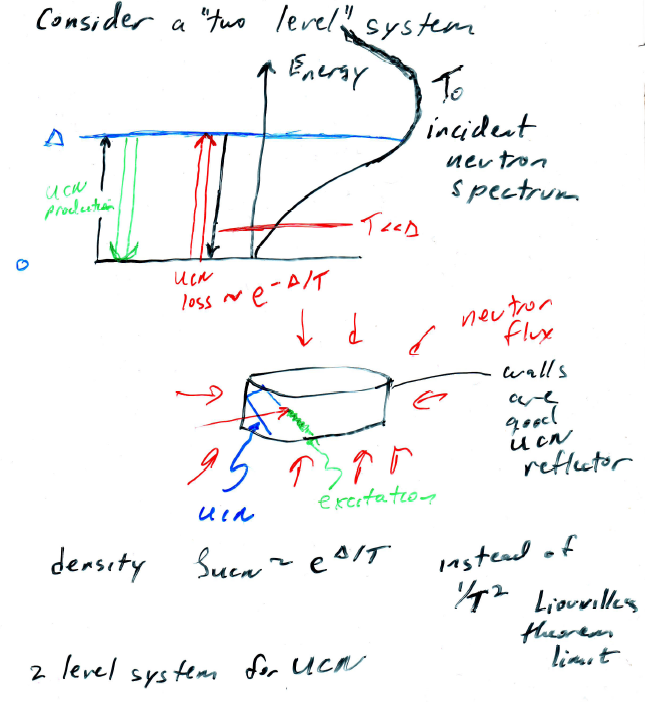 Consider a "two level" system
Energy
To
Δ
incident
neutron
spectrum
UCN
production
T<<Δ
0
UCN
loss ~ e^-Δ/T
neutron
flux
walls
are
good
UCN
reflector
UCN
excitation
density ρucn ~ e^Δ/T instead of
1/T² Liouvilles
theorem
limit
2 level system for UCN